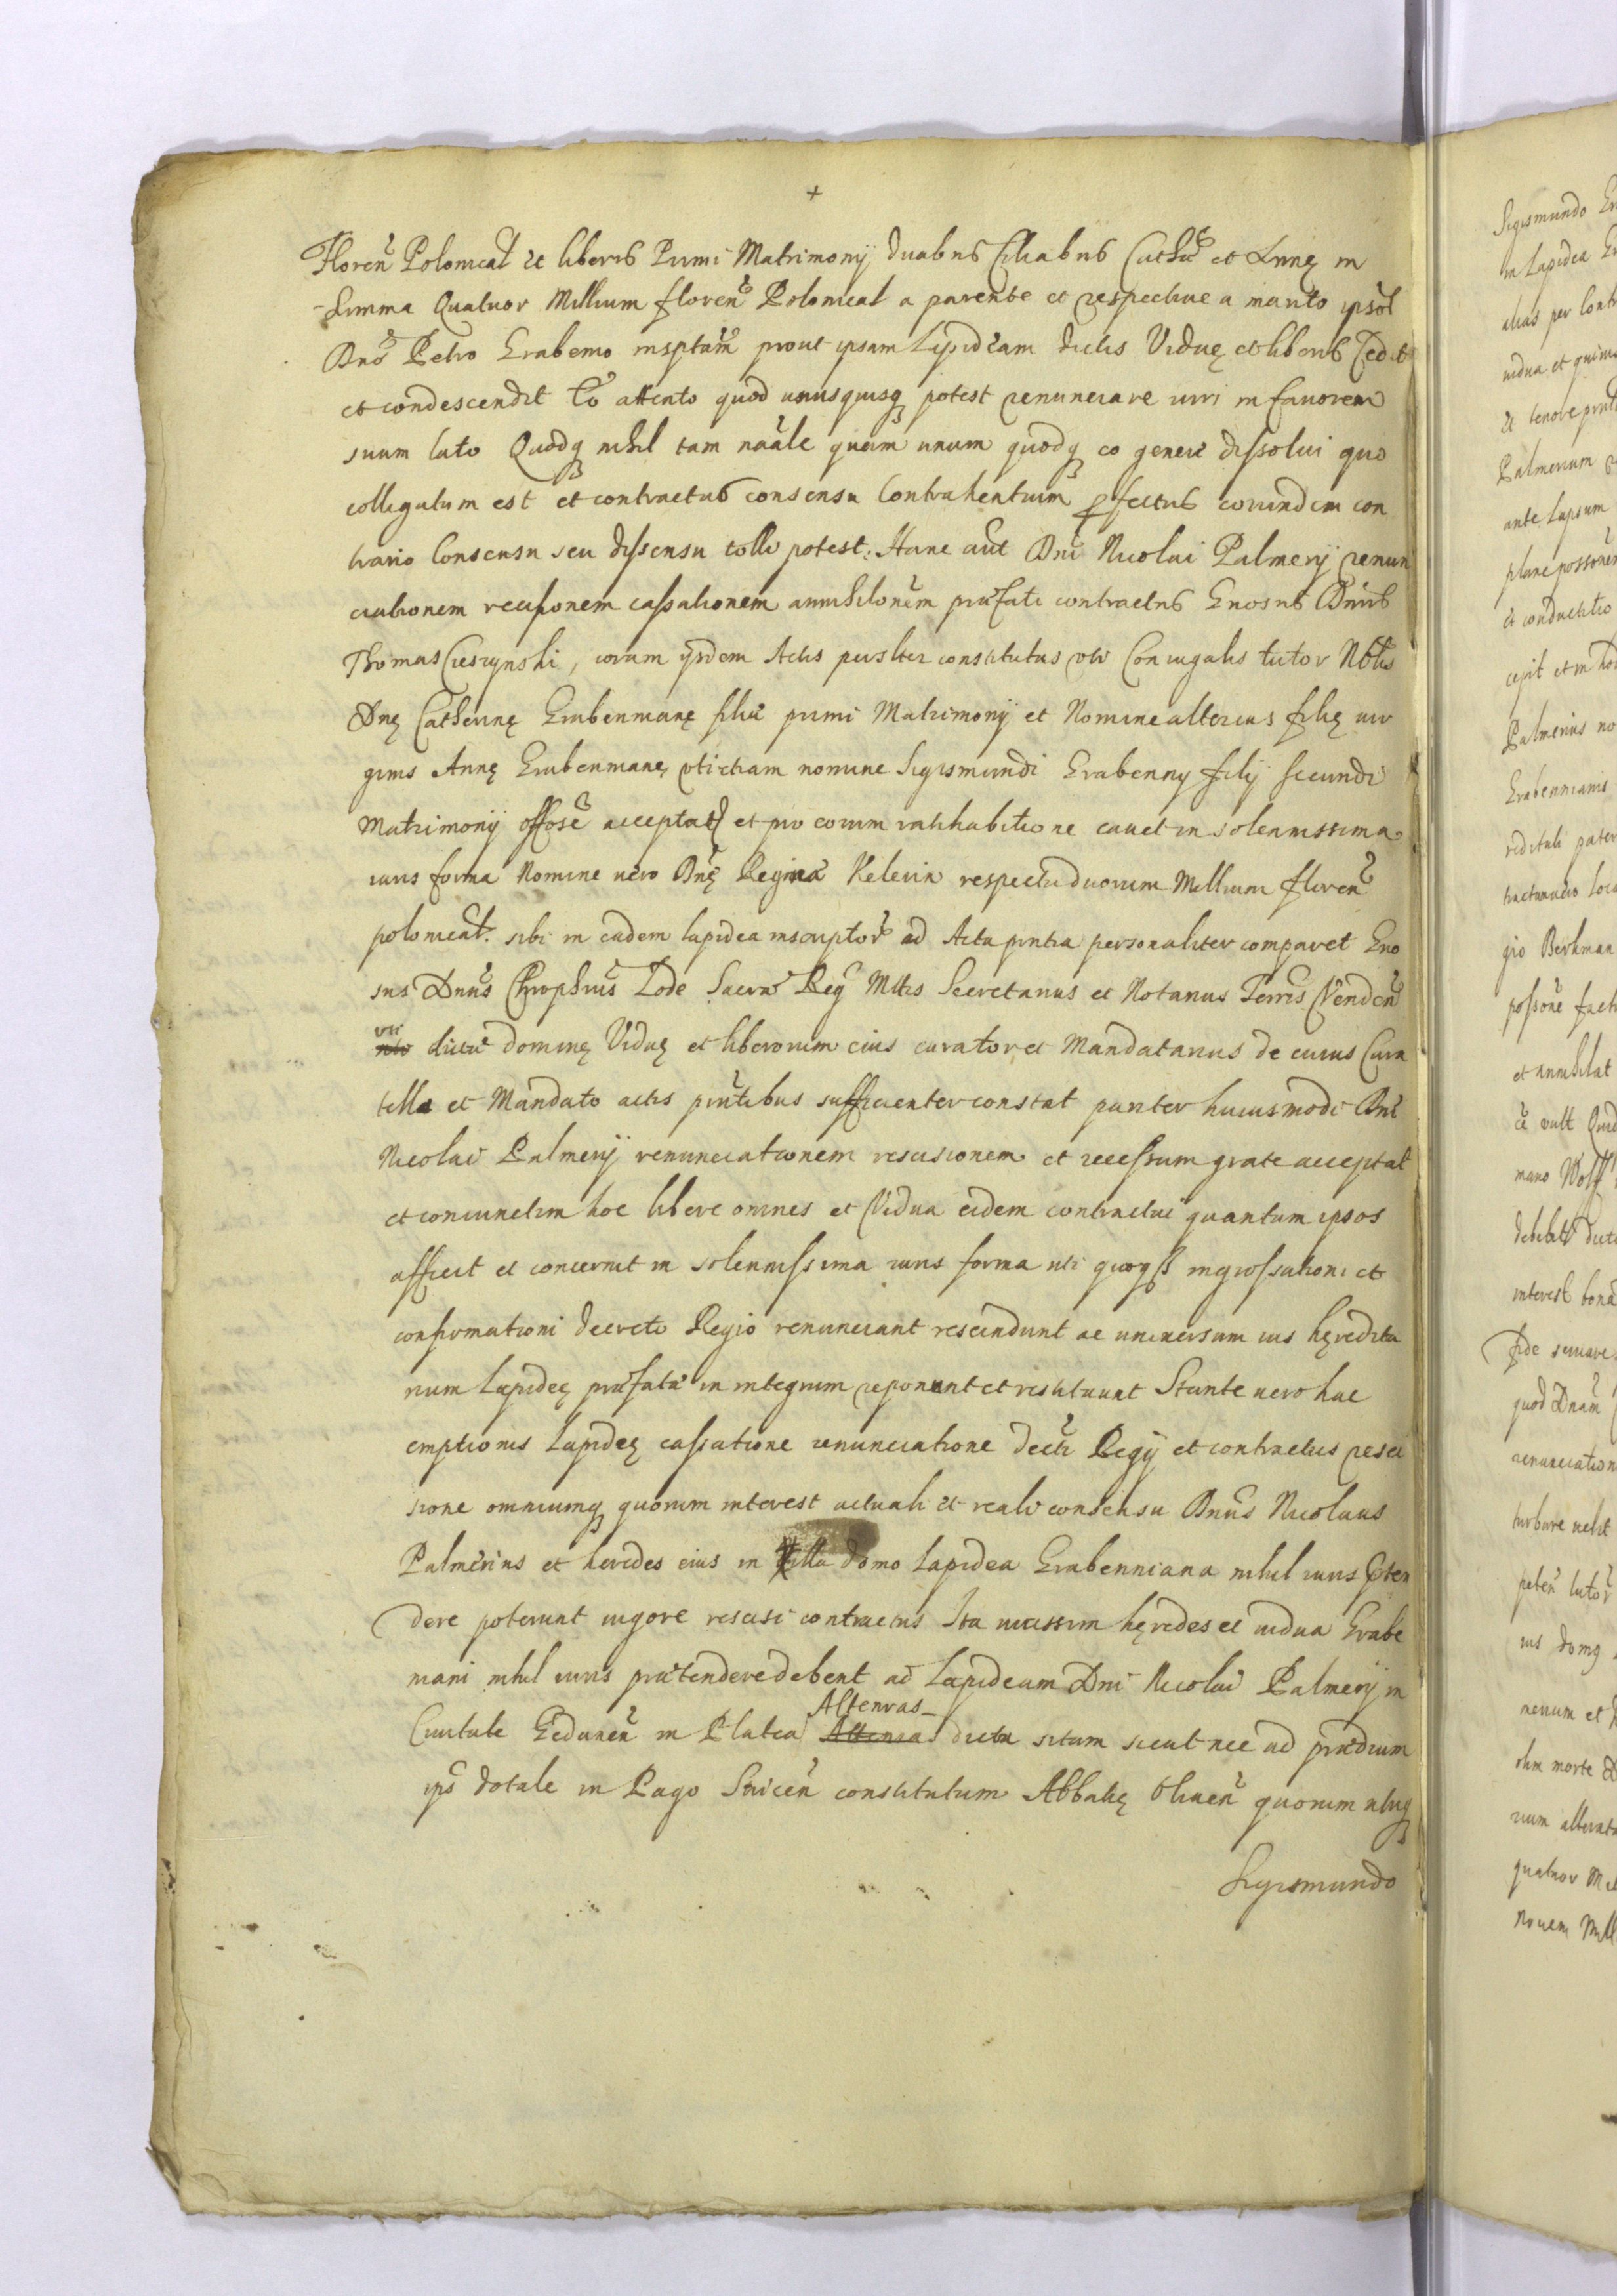 +
Floren̄ Polonical et liberis Primi Matrimonij duabus filiabus Cathæ et Annę in
Summa Quatuor Millium floren̄ Polonical a parente et respective a marito ipsor
Dno Petro Grabenio insptam prout ipsam Lapideam dictis Viduę et liberis Cedit
et condescendit Eo attento quod unusquisq potest renunciare iuri in favorem
suum lato Quodq nihil tam naāle quam unum quodq eo genere dissolui quo
colligatum est et contractus consensu Contrahentium pfectus eorundem con
trario Consensu seu dissensu tolli potest. Hanc aut Dni Nicolai Palmerij renun
ciationem recisionem cassationem annihilonem præfati contractus Gnosus Dnus
Thomas Cieszynski, coram ijsdem Actis psliter constitutus uti Coniugalis tutor Nobis
Dnę Catherinę Grabenmanę filiæ primi Matrimonij et Nomine alterius filię uir
ginis Annę Grabenmanę, uti etiam nomine Sigismundi Grabenny filij secundi
Matrimonij offose acceptat et pro eorum ratihabitione cavet in solennissima
iuris forma Nomine uero Dnę Reginæ Kelerin respectu duorum Millium floren̄
polonical. sibi in eadem lapidea inscriptor ad Acta pntia personaliter comparet Gno
sus Dnus Chrophrus Lode Sacræ Reg Mttis Secretarius et Notarius Terris Venden̄
uti
nto dictæ dominę Viduę et liberorum eius curator et Mandatarius de cuius Cura
tella et Mandato actis pntibus sufficienter constat pariter huiusmodi Dni
Nicolai Palmerij renunciationem rescisionem et recessum grate acceptat
et coniunctim hoc libere omnes et Vidua eidem contractui quantum ipsos
afficit et concernit in solennissima iuris forma uti quoqz ingrossationi et
confirmationi decreto Regio renunciant rescindunt ac universum ius hęredita
rium Lapideę præfatæ in integrum reponunt et restituunt Stante uero hac
emptionis Lapideę cassatione renunciatione decti Regij et contractus resci
sione omniumq quorum interest actuali et reali consensu Dnus Nicolaus
Palmerius et heredes eius in illa domo Lapidea Grabenniana nihil iuris pten
dere poterunt uigore rescisi contractus Ita uicissim hęredes et uidua Grabe
mani nihil iuris prætendere debent ad Lapideam Dni Nicolai Palmerij in
Altenras-
Ciuitate Gedanen̄ in Platea Altenras dicta sitam sicut nec ad prædium
ips dotale in Pago Stricen̄ constitutum Abbatię Oliuen̄ quorum utriq
Sigismundo
Sigismundo
in Lapidea
alias per
uidua et
et tenore
Palmerium
ante Lapsum
plane
et
cepit et in
Palmerius no
Grabennianis
pater
gio Berkman
et annihilat
uult
mano Wolff
interest
fide
quod Dnam
renunciation
turbare uelit
ius
et
morte
nouem Mill